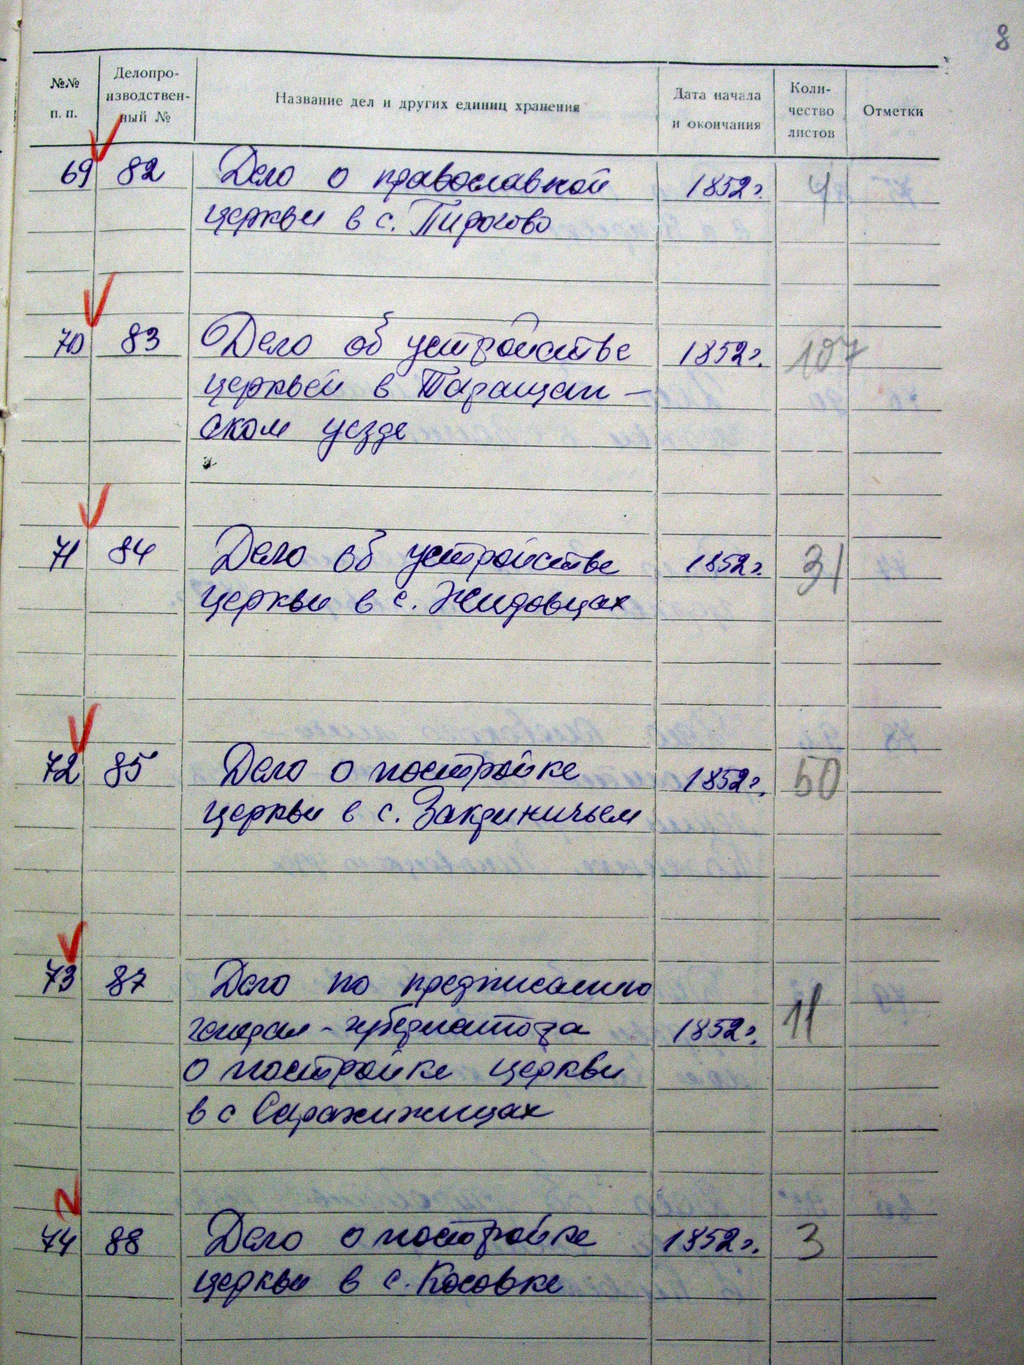 8
№№ п. п. Делопро-изводствен-ный № Название дел и других единиц хранения Дата начала и окончания Коли-чество листов Отметки
69 82 Дело о православной 1852г. 4
церкви в с. Пирогово
70 83 Дело об устройстве 1852г. 107
церквей в Таращан-
ском уезде
71 84 Дело об устройстве 1852г. 31
церкви в с. Жидовцах
72 85 Дело о постройке 1852г. 50
церкви в с. Закриничьем
73 87 Дело по предписанию
генерал-губернатора 1852г. 11
о постройке церкви
в с
74 88 Дело о постройке 1852г. 3
церкви в с. Косовке